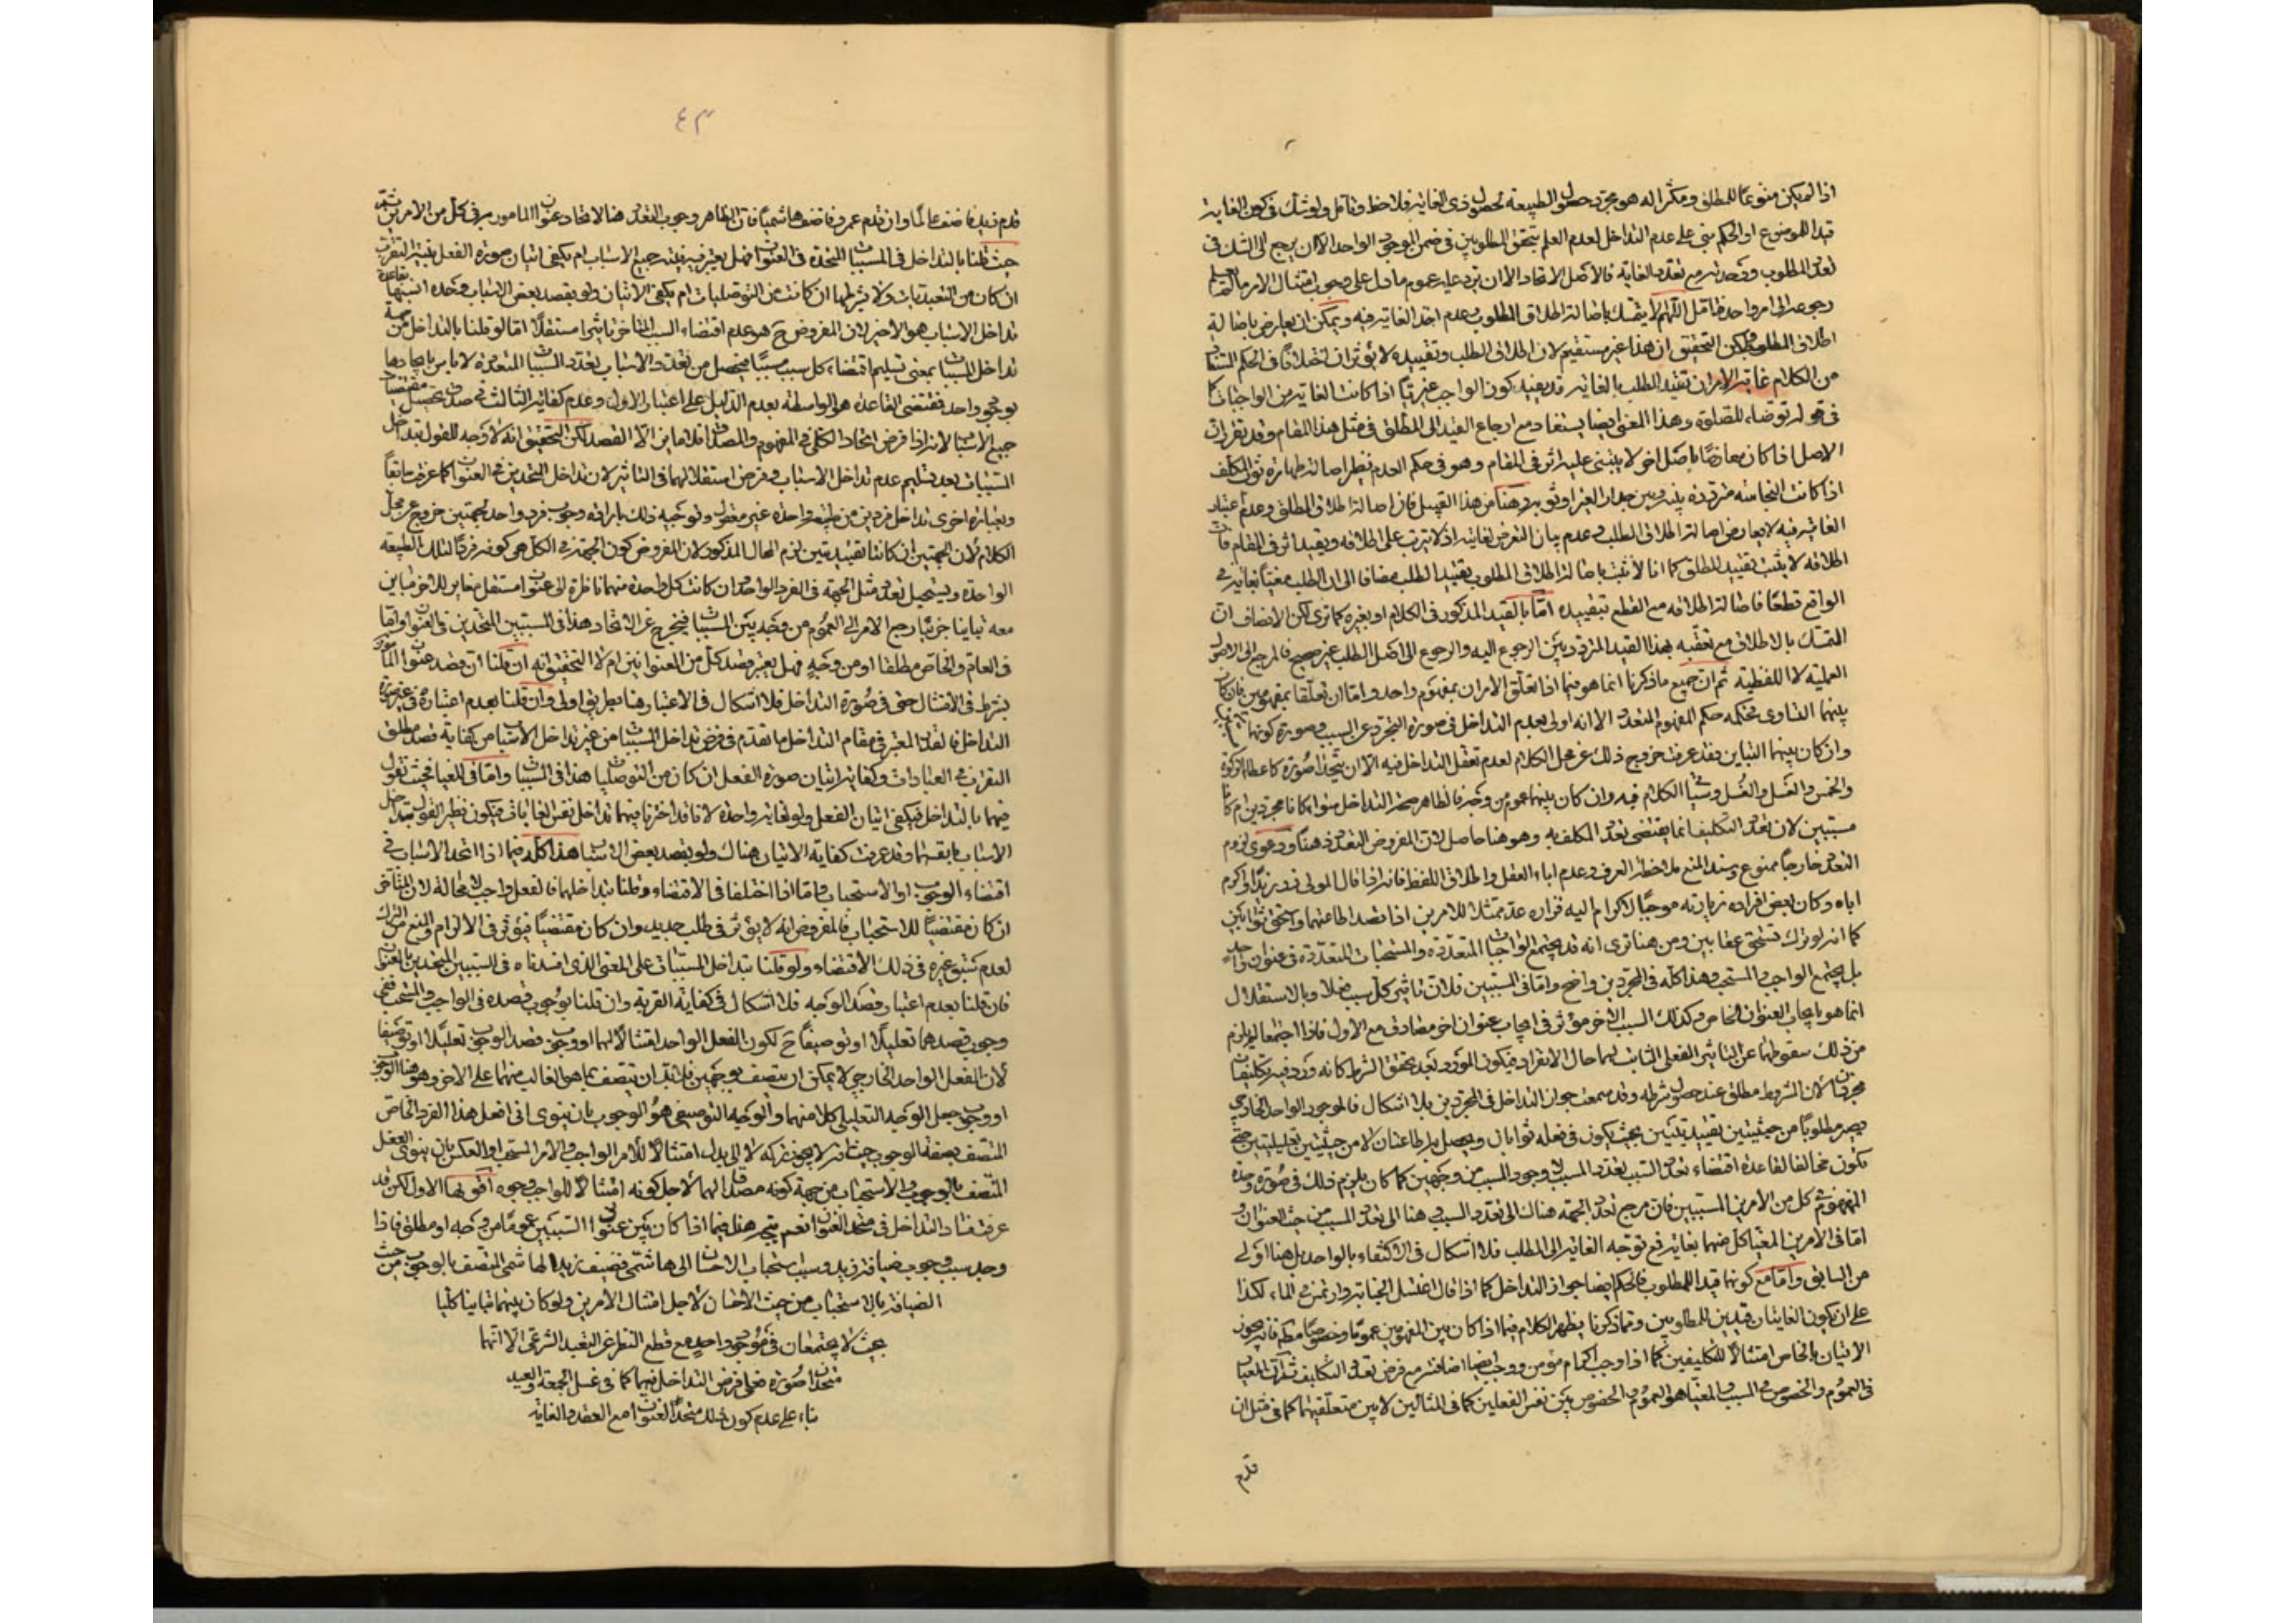 اذا لم يكن منوعا للمطلق ومكثرا له هو مجرد حصول الطبيعة لحصول ذى الغاية فلاحظ وتأمل ولو شك فى كون الغاية
قيدا للموضوع او الحكم بنى على عدم التداخل لعدم العلم بتحقق المطلوبين فى ضمن الموجود الواحد الا ان يرجع الى الشك فى
تعدد المطلوب ووحدته مع تعدد الغاية فالاصل الاتحاد الا ان يرد عليه عموم ما دل على وجوب امتثال الامر
رجوعه الى امر واحد فتأمل اللهم الا يتمسك باصالة اطلاق المطلوب وعدم اخذ الغاية فيه ويمكن ان يعارض باصالة
اطلاق الطلب ولكن التحقيق ان هذا غير مستقيم لان اطلاق الطلب وتقييده لا يؤثران اختلافا فى الحكم المستفاد
من الكلام غاية الامر ان تقييد الطلب بالغاية قد يفيد كون الواجب غيريا اذا كانت الغاية من الواجبات كما
فى قوله توضأ للصلوة وهذا المعنى ايضا يستفاد مع ارجاع القيد الى المطلق فى مثل هذا المقام وقد تقرر ان
الاصل اذا كان معارضا باصل اخر لا يبتنى عليه اثر فى المقام وهو فى حكم العدم نظير اصالة طهارة ثوب المكلف
اذا كانت النجاسة مترددة بينه وبين جدار الغير او ثوبه وهنا من هذا القبيل فان اصالة اطلاق المطلق وعدم اعتبار
الغاية فيه لا يعارض اصالة اطلاق الطلب وعدم بيان التعرض لغاية اذ لا يترتب على اطلاقه وتقييده اثر فى المقام فان
اطلاقه لا يثبت تقييد المطلق كما انا لا نثبت باصالة اطلاق المطلوب تقييد الطلب مضافا الى ان الطلب مغيا بغاية فى
الواقع قطعا فاصالة اطلاقه مع القطع بتقييده اما بالقيد المذكور فى الكلام او بغيره كما ترى لكن الانصاف ان
التمسك بالاطلاق مع تعقبه بهذا القيد المتردد بين الرجوع اليه والرجوع الى اصل الطلب غير صحيح فالمرجع الى الاصول
العملية لا اللفظية ثم ان جميع ما ذكرنا انما هو فيما اذا تعلق الامران بمفهوم واحد واما ان تعلقا بمفهومين فان كان
بينهما التساوى فحكمه حكم المفهوم المتعدد الا انه اولى بعدم التداخل فى صورة التجرد عن السبب وصورة كونها
وان كان بينهما التباين فقد عرفت خروج ذلك عن محل الكلام لعدم تعقل التداخل فيه الا ان يتحدا صورة كاعطاء الزكوة
والخمس والغسل والغسل وسيأتى الكلام فيه وان كان بينهما عموم من وجه فالظاهر صحة التداخل سواء كانا مجردين ام كانا
مسببين لان تعدد التكليف انما يقتضى تعدد المكلف به وهو هنا حاصل لان المفروض التعدد فى هنا ودعوى لزوم
التعدد خارجا ممنوع وسند المنع ملاحظة العرف وعدم اباء العقل واطلاق اللفظ فانه اذا قال المولى زر زيدا واكرم
اباه وكان بعض افراد زيارته موجبا لاكرام ابيه فزاره عد ممتثلا للامرين اذا قصد اطاعتهما واستحق ثوابين
كما انه لو ترك تستحق عقابين ومن هنا ترى انه قد يجتمع الواجبات المتعددة والمستحبات المتعددة فى عنوان واحد
بل يجتمع الواجب والمستحب وهذا كله فى المجردين واضح واما فى المسببين فلان تأثير كل سبب فعلا وبالاستقلال
انما هو بايجاب العنوان الخاص وكذلك السبب الاخر مؤثر فى ايجاب عنوان اخر مصادق مع الاول فاذا اجتمعا لم يلزم
من ذلك سقوطهما عن التأثير الفعلى الثابت لهما حال الانفراد فيكون المورد بعد تحقق الشرط كانه ورد فيه تكليفان
مجردان لان المشروط مطلق عند حصول شرطه وقد سمعت جواز التداخل فى المجردين بلا اشكال فالموجود الواحد الخارجى
يصير مطلوبا من حيثيتين تقييديتين بحيث يكون فى فعله ثوابان ويحصل به اطاعتان لا من حيثيتين تعليليتين حتى
تكون مخالفا لقاعدة اقتضاء تعدد السبب تعدد المسبب لا وجود المسبب من وجهين كما كان يلزم ذلك فى صورة وحدة
المفهوم فى كل من الامرين المسببين فان مرجع تعدد الجهة هناك الى تعدد السبب وهنا الى تعدد المسبب من حيث العنوان و
اما فى الامرين المغيا كل منهما بغاية فمع توجه الغاية الى الطلب فلا اشكال فى الاكتفاء بالواحد بل هنا اولى
من السابق واما مع كونها قيدا للمطلوب فالحكم ايضا جواز التداخل كما اذا قال اغتسل للجنابة وارتمس فى الماء لكذا
على ان يكون الغايتان قيدين للمطلوبين ومما ذكرنا يظهر الكلام فيما اذا كان بين المفهومين عموما وخصوصا مطلقا فانه يجوز
الاتيان بالخاص امتثالا للتكليفين كما اذا وجب اكرام مؤمن ووجب ايضا اضافته مع فرض تعدد التكليف ثم ان المعيار
فى العموم والخصوص فى السبب والمغيا هو العموم والخصوص بين نفس الفعلين كما فى المثالين لا بين متعلقيهما كما فى مثل ان
قدم
٤٣
قدم زيد فاضف عالما وان قدم عمرو فاضف هاشميا فان الظاهر وجوب التعدد هنا لاتحاد عنوان المامور به فى كل من الامرين
حيث قلنا بالتداخل فى المسببات المتحدة فى العنوان فهل يعتبر فيه نية جميع الاسباب ام يكفى اتيان صورة الفعل بنية التقرب
ان كان من التعبديات ولا يشترطها ان كانت من التوصليات ام يكفى الاتيان ولو بقصد بعض الاسباب وحده
تداخل الاسباب هو الاخير لان المفروض ح هو عدم اقتضاء السبب المتاخر تاثيرا مستقلا اما لو قلنا بالتداخل من جهة
تداخل المسببات بمعنى تسليم اقتضاء كل سبب مسببا فيحصل من تعدد الاسباب تعدد المسببات المتعددة لا باس بايجادها
بوجود واحد فمقتضى القاعدة هو الواسطة بعدم الدليل على اعتبار الاول وعدم كفاية الثالث فى صدق تحصيل مقتضيات
جميع الاسباب لانه اذا فرض اتحاد الكلى فى المفهوم والمصداق فلا مايز الا القصد لكن التحقيق انه لا وجه للقول بتداخل
المسببات بعد تسليم عدم تداخل الاسباب وفرض استقلالهما فى التاثير لان تداخل المتحدين فى العنوان كما عرفت سابقا
وبعبارة اخرى تداخل فردين من طبيعة واحدة غير معقول وتوجيه ذلك بارادة وجوب فرد واحد لجهتين خروج عن محل
الكلام لان الجهتين ان كانتا تقييديتين لزم المحال المذكور لان المفروض كون الجهة فى الكل هى كونه فردا لتلك الطبيعة
الواحدة ويستحيل تعدد مثل الجهة فى الفرد الواحد وان كانت كل واحدة منهما ناظرة الى عنوان مستقل مغاير للاخر مباين
معه تباينا جزئيا رجع الامر الى العموم من وجه بين المسببات فيخرج عن الاتحاد هذا فى المسببين المتحدين فى العنوان واما
فى العام والخاص مطلقا او من وجه فهل يعتبر قصد كل من العنوانين ام لا التحقيق انه ان قلنا ان قصد عنوان المامور به
يشترط فى الامتثال حتى فى صورة التداخل فلا اشكال فى الاعتبار هنا بطريق اولى وان قلنا بعدم اعتباره فى غير صورة
التداخل فالقدر المعتبر فى مقام التداخل ما تقدم فى فرض تداخل المسببات من غير تداخل الاسباب من كفاية قصد مطلق
التقرب فى العبادات وكفاية اتيان صورة الفعل ان كان من التوصليات هذا فى المسببات واما فى المغيا فحيث نقول
فيهما بالتداخل فيكفى اتيان الفعل ولو لغاية واحدة لانا قد اخترنا فيهما تداخل نفس الغايات فيكون نظير القول بتداخل
الاسباب بانفسها وقد عرفت كفاية الاتيان هناك ولو بقصد بعض الاسباب هذا كله فيما اذا اتحد الاسباب فى
اقتضاء الوجوب او الاستحباب واما اذا اختلفا فى الاقتضاء وقلنا بتداخلهما فالفعل واجب لا محالة لان المتاخر
ان كان مقتضيا للاستحباب فالمفروض انه لا يؤثر فى طلب جديد وان كان مقتضيا فيؤثر فى الالزام والمنع من الترك
لعدم سبق غيره فى ذلك الاقتضاء ولو قلنا بتداخل المسببات على المعنى الذى افسدناه فى المسببين المتحدين بالعنوان
فان قلنا بعدم اعتبار قصد الوجه فلا اشكال فى كفاية القربة وان قلنا بوجوب قصده فى الواجب والمستحب ففى
وجوب قصدهما تعليلا او توصيفا ح لكون الفعل الواحد امتثالا لهما او وجوب قصد الوجوب تعليلا او توصيفا
لان الفعل الواحد الخارجى لا يمكن ان يتصف بوجهين فلا بد ان يتصف بما هو الغالب منهما على الاخر وهو هنا الوجوب
او وجوب جعل الوجه التعليلى كلا منهما والوجه التوصيفى هو الوجوب بان ينوى انى افعل هذا الفرد الخاص
المتصف بصفة الوجوب حيث انه لا يجوز تركه لا الى بدل امتثالا للامر الواجب والامر المستحب او العكس بان ينوى الفعل
المتصف بالوجوب والاستحباب من جهة كونه مصداقا لهما لاجل كونه امتثالا للواجب وجوه اقويها الاول لكن قد
عرفت فساد التداخل فى متحد العنوان نعم يتجه هنا فيما اذا كان بين عنوان السببين عموما من وجه او مطلق فاذا
وجد سبب وجوب ضيافة زيد وسبب استحباب الاحسان الى هاشمى فضيف زيدا الهاشمى المتصف بالوجوب من حيث
الضيافة بالاستحباب من حيث الاحسان لاجل امتثال الامرين ولو كان بينهما تباينا كليا
بحيث لا يجتمعان فى موجود واحد مع قطع النظر عن التعبد الشرعى الا انهما
متحدان صورة فعلى فرض التداخل فيهما كما فى غسل الجمعة والعيد
بناء على عدم كون ذلك متحد العنوان مع العقد والغاية